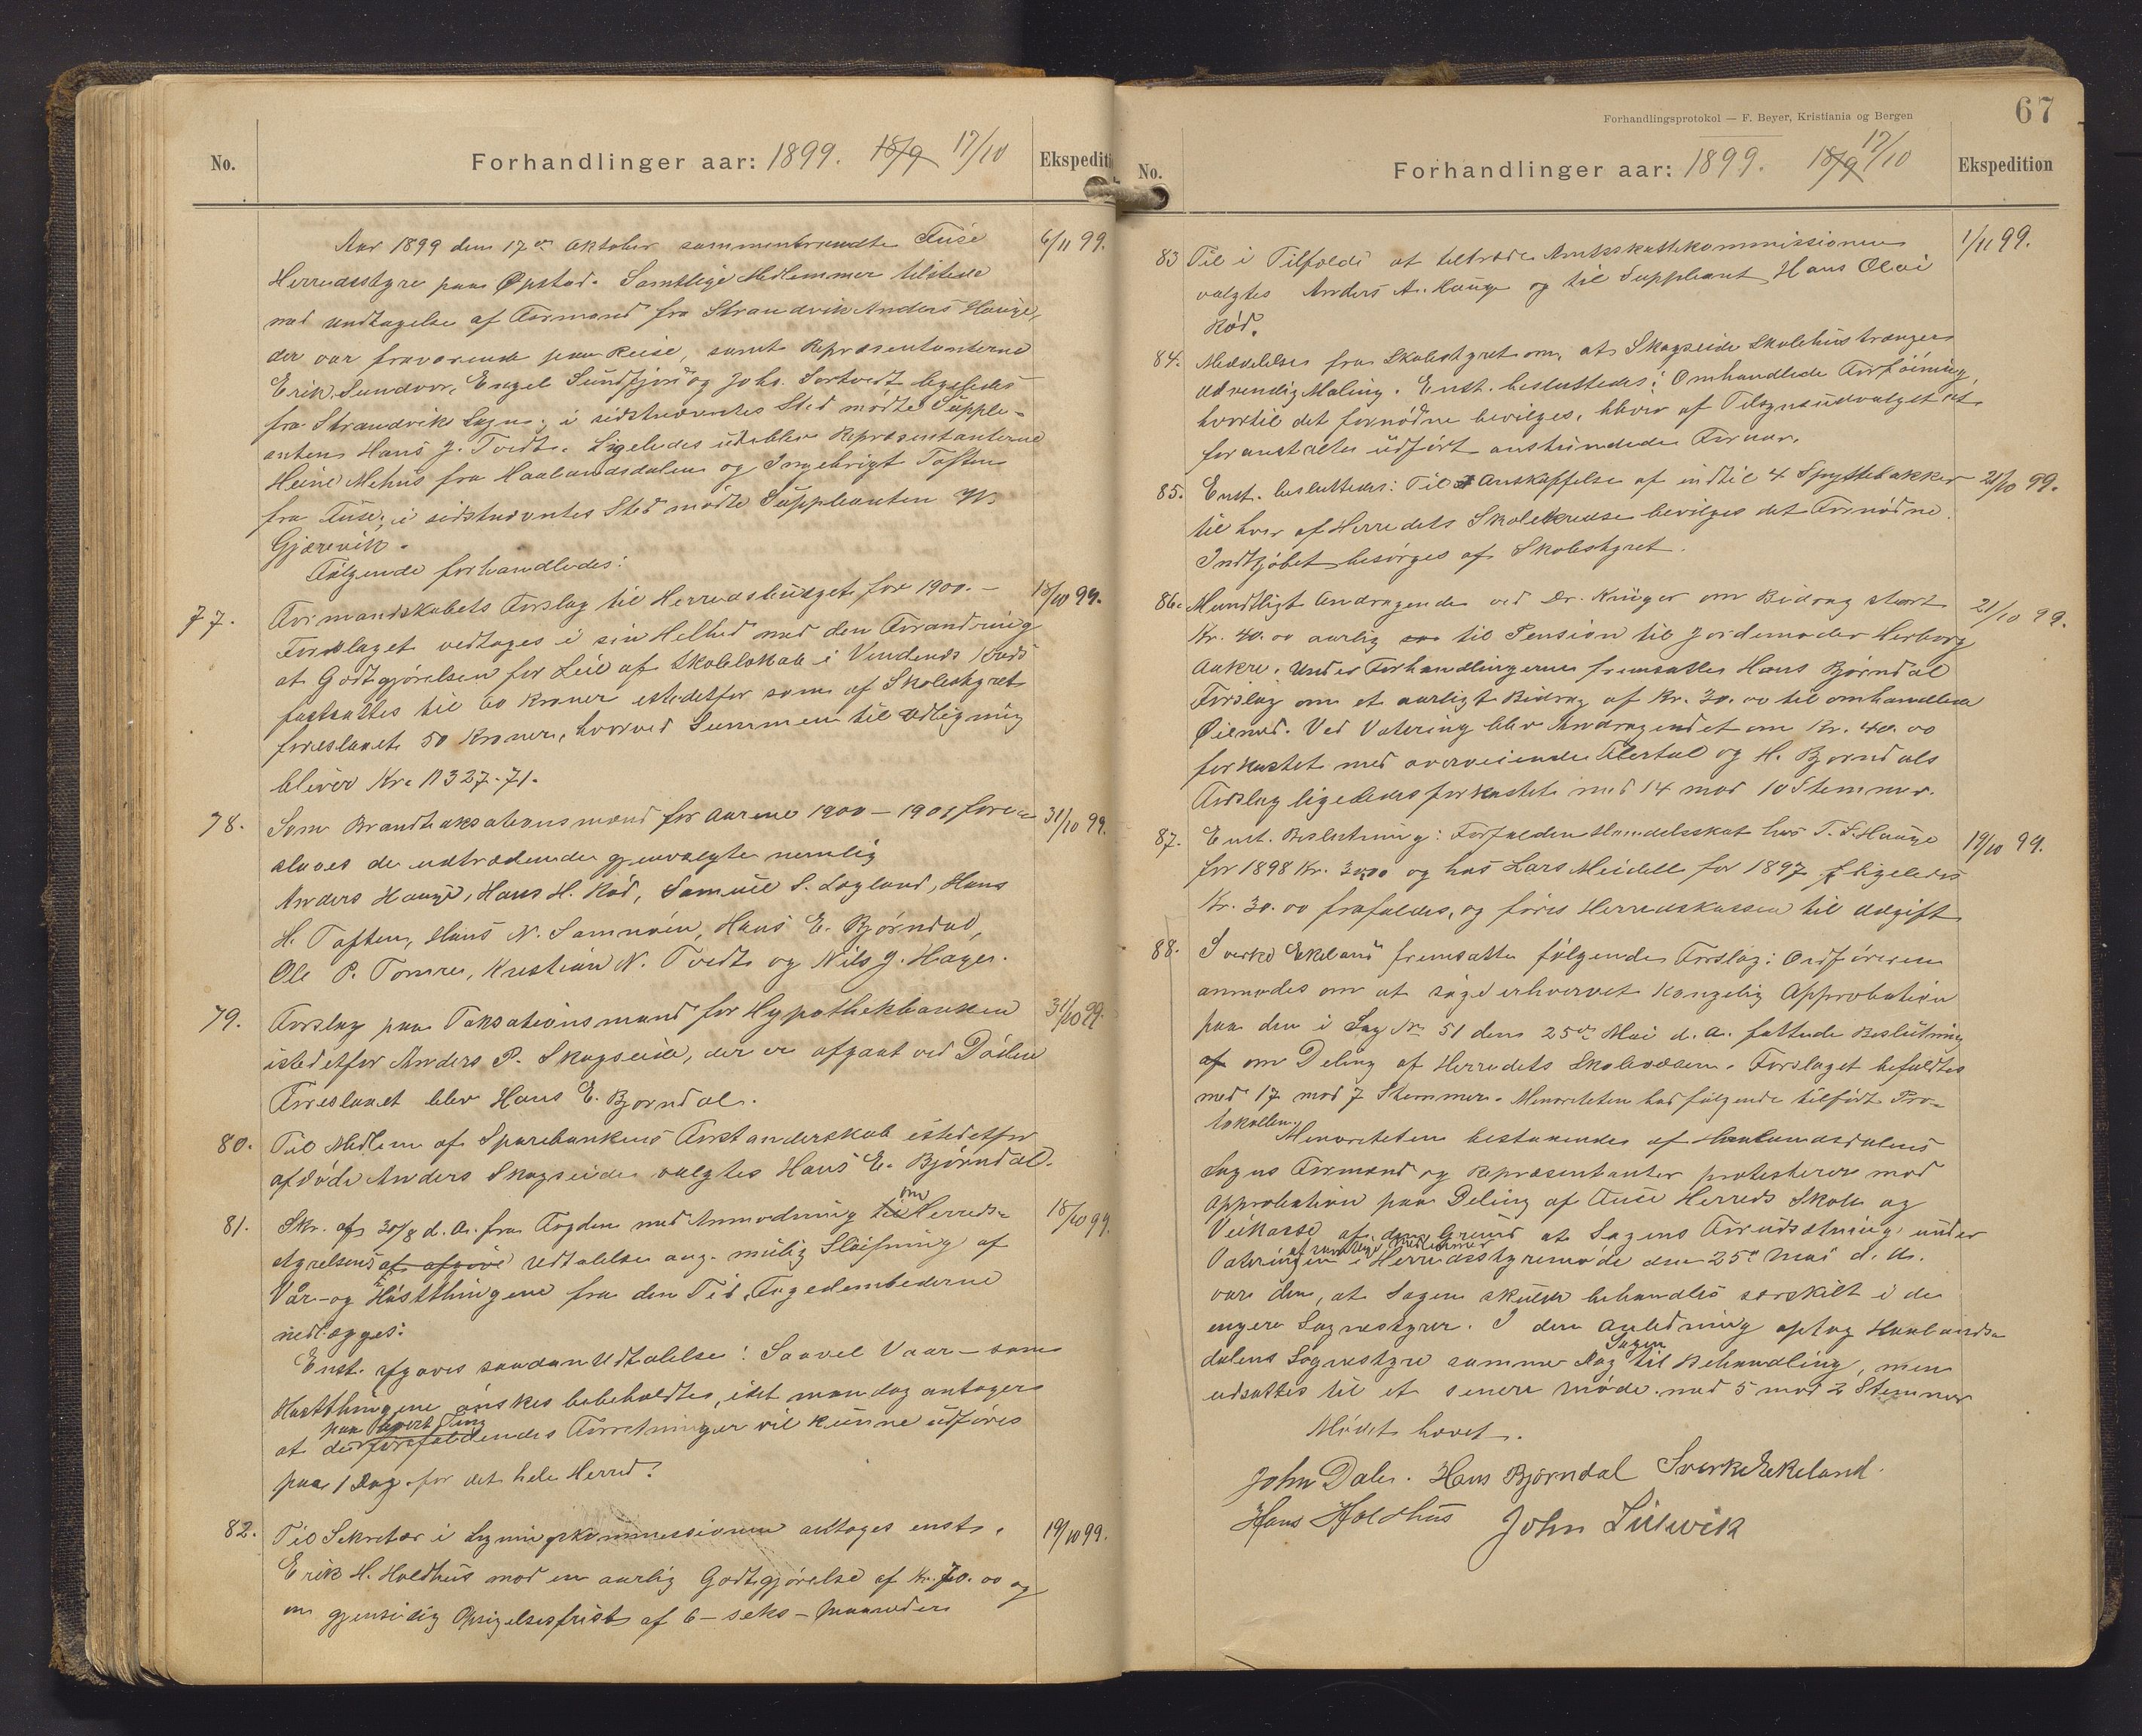 No.
Forhandlinger aar: 1899. 18/9 17/10
Ekspediti
Aar 1899 den 17de Oktober sammentraadte Fuse
6/11 99.
Herredsstyre paa Opstad. Samtlige Medlemmer tilstede
med Undtagelse af Formand fra Strandvik Anders Hauge,
der var fraværende paa Reise, samt Repræsentanterne
Erik Sundvor, Engel Sundfjord og Johs. Sortvedt ligeledes
fra Strandvik Sogn; i sidstnævntes Sted mødte Supple-
anten Hans J. Tvedt. Ligeledes udeblev Repræsentanterne
Heine Mehus fra Haalandsdalen og Ingebrigt Toften
fra Fuse; i sidstnævntes Sted mødte Suppleanten
Gjærevik.
Følgende forhandledes:
77.
Formandskabets Forslag til Herredsbudget for 1900. -
18/10 99.
Forslaget vedtoges i sin Helhed med den Forandring
at Godtgjørelsen for Leie af Skolelokale i Vindenes Kreds
fastsattes til 60 Kroner istedetfor som af Skolestyret
foreslaaet 50 Kroner, hvorved Summen til Udligning
bliver Kr. 11327.71.
78.
Som Brandtaksationsmænd for Aarene 1900 - 1901 fore-
31/10 99.
slaaes de udtrædende gjenvalgte nemlig
Anders Hauge, Hans H. Kød, Samuel S. Løgland, Hans
H. Toften, Hans N. Samnøen, Hans E. Bjørndal,
Ole P. Tomre, Kristian N. Tvedt og Nils J. Hagen.
79.
Forslag paa Taksationsmand for Hypothekbanken
31/10 99.
istedetfor Anders P. Skogseide, der er afgaat ved Døden
Foreslaaet blev Hans E. Bjørndal.
80.
Til Medlem af Sparebankens Forstanderskab istedetfor
afdøde Anders Skogseide valgtes Hans E. Bjørndal.
81.
Skr. af 30/8 d. A. fra Fogden med Anmodning til om Herreds-
18/10 99.
styrelsens at afgive Udtalelse ang. mulig Sløifning af
Vår- og Høstthingene fra den Tid Fogedembederne
nedlægges:
Enst. afgaves saadan Udtalelse: Saavel Vaar - som
Høstthingene ønskes bibeholdte, idet man dog antager
paa hvert Ting
at de forefaldende Forretninger vil kunne udføres
paa 1 Dag for det hele Herred.
82.
Til Sekretær i Ligningskommissionen antoges enst.
19/10 99.
Erik H. Holdhus mod en aarlig Godtgjørelse af Kr. 70.00 og
en gjensidig Opsigelsesfrist af 6 - seks - Maaneder
67
Forhandlingsprotokol — F. Beyer, Kristiania og Bergen
No.
Forhandlinger aar: 1899. 18/9 17/10
Ekspedition
83
Til i Tilfælde at tiltræde Amtsskattekommissionen
1/11 99.
valgtes Anders A. Hauge og til Suppleant Hans Olai
Kød.
84.
Meddelelse fra Skolestyret om, at Skogseide Skolehus trænger
udvendig Maling. Enst. besluttedes: Omhandlede Forføining,
hvortil det fornødne bevilges, bliver af Tilsynsudvalget at
foranstalte udført anstundende Foraar.
85.
Enst. besluttedes: Til Anskaffelse af indtil 4 Spyttebakker
21/10 99.
til hver af Herredets Skolekredse bevilges det Fornødne.
Indkjøbet besørges af Skolestyret.
86.
Mundtligt Andragende ved Dr. Krüger om Bidrag stort
21/10 99.
Kr. 40.00 aarlig til Pension til Jordemoder Herborg
Aakre. Under Forhandlingerne fremsatte Hans Bjørndal
Forslag om et aarligt Bidrag af Kr. 30.00 til omhandlede
Øiemed. Ved Votering blev Andragendet om Kr. 40.00
forkastet med overveiende Flertal og H. Bjørndals
Forslag ligeledes forkastet med 14 mod 10 Stemmer.
87.
Enst. Beslutning: Forfalden Handelsskat hos T. S. Hauge
19/10 99.
for 1898 Kr. 30.00 og hos Lars Meidell for 1897 ligeledes
Kr. 30.00 frafaldes, og føres Herredskassen til Udgift
88.
Sverke Ekeland fremsatte følgende Forslag: Ordføreren
anmodes om at søge erhvervet kongelig Approbation
paa den i Sag No 51 den 25de Mai d. A. fattede Beslutning
af om Deling af Herredets Skolevæsen. Forslaget bifaldtes
med 17 mod 7 Stemmer. Minoriteten had følgende tilført Pro-
tokollen:
Minoriteten bestaaende af Haalandsdalens
Sogns Formænd og Repræsentanter protesterer mod
Approbation paa Deling af Fuse Herreds Skole og
Veikasse af den Grund at Sagens Forudsætning under
af samtlige Medlemmer
Voteringen i Herredsstyremøde den 25de Mai d. A.
var den, at Sagen skulde behandles særskilt i de
engere Sognestyrer. I den Anledning optog Haalands-
Sagen
dalens Sognestyre samme Dag til Behandling, men
udsattes til et senere Møde med 5 mod 2 Stemmer
Mødet hævet.
John Dale. Hans Bjørndal Sverke Ekeland.
Hans Holdhus John Lilvik